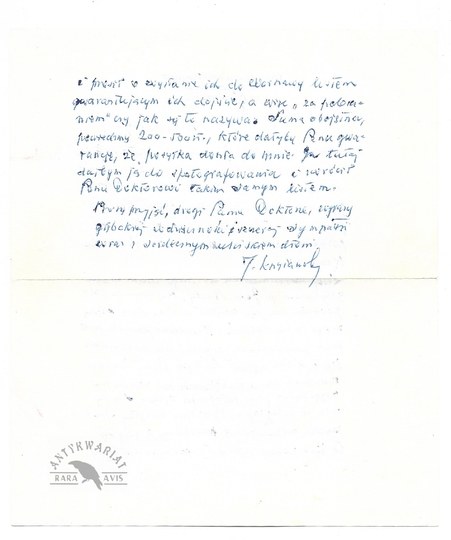 i prosić o wysłanie ich do Warszawy listem
gwarantującym ich dojście, a więc „za pobra-
niem" czy jak się to nazywa. Suma obojętna,
powiedzmy 200-, które dałyby Panu gwa-
rancję, że posyłka doszła do mnie. Ja tutaj
dałbym je do sfotografowania i zwrócił
Panu Doktorowi takim samym listem.
Proszę przyjąć, drogi Panie Doktorze, wyrazy
głębokiej wdzięczności i szczerej sympatii
wraz z serdecznym uściskiem dłoni
J. Krzyżanowski
ANTYKWARIAT
RARA AVIS